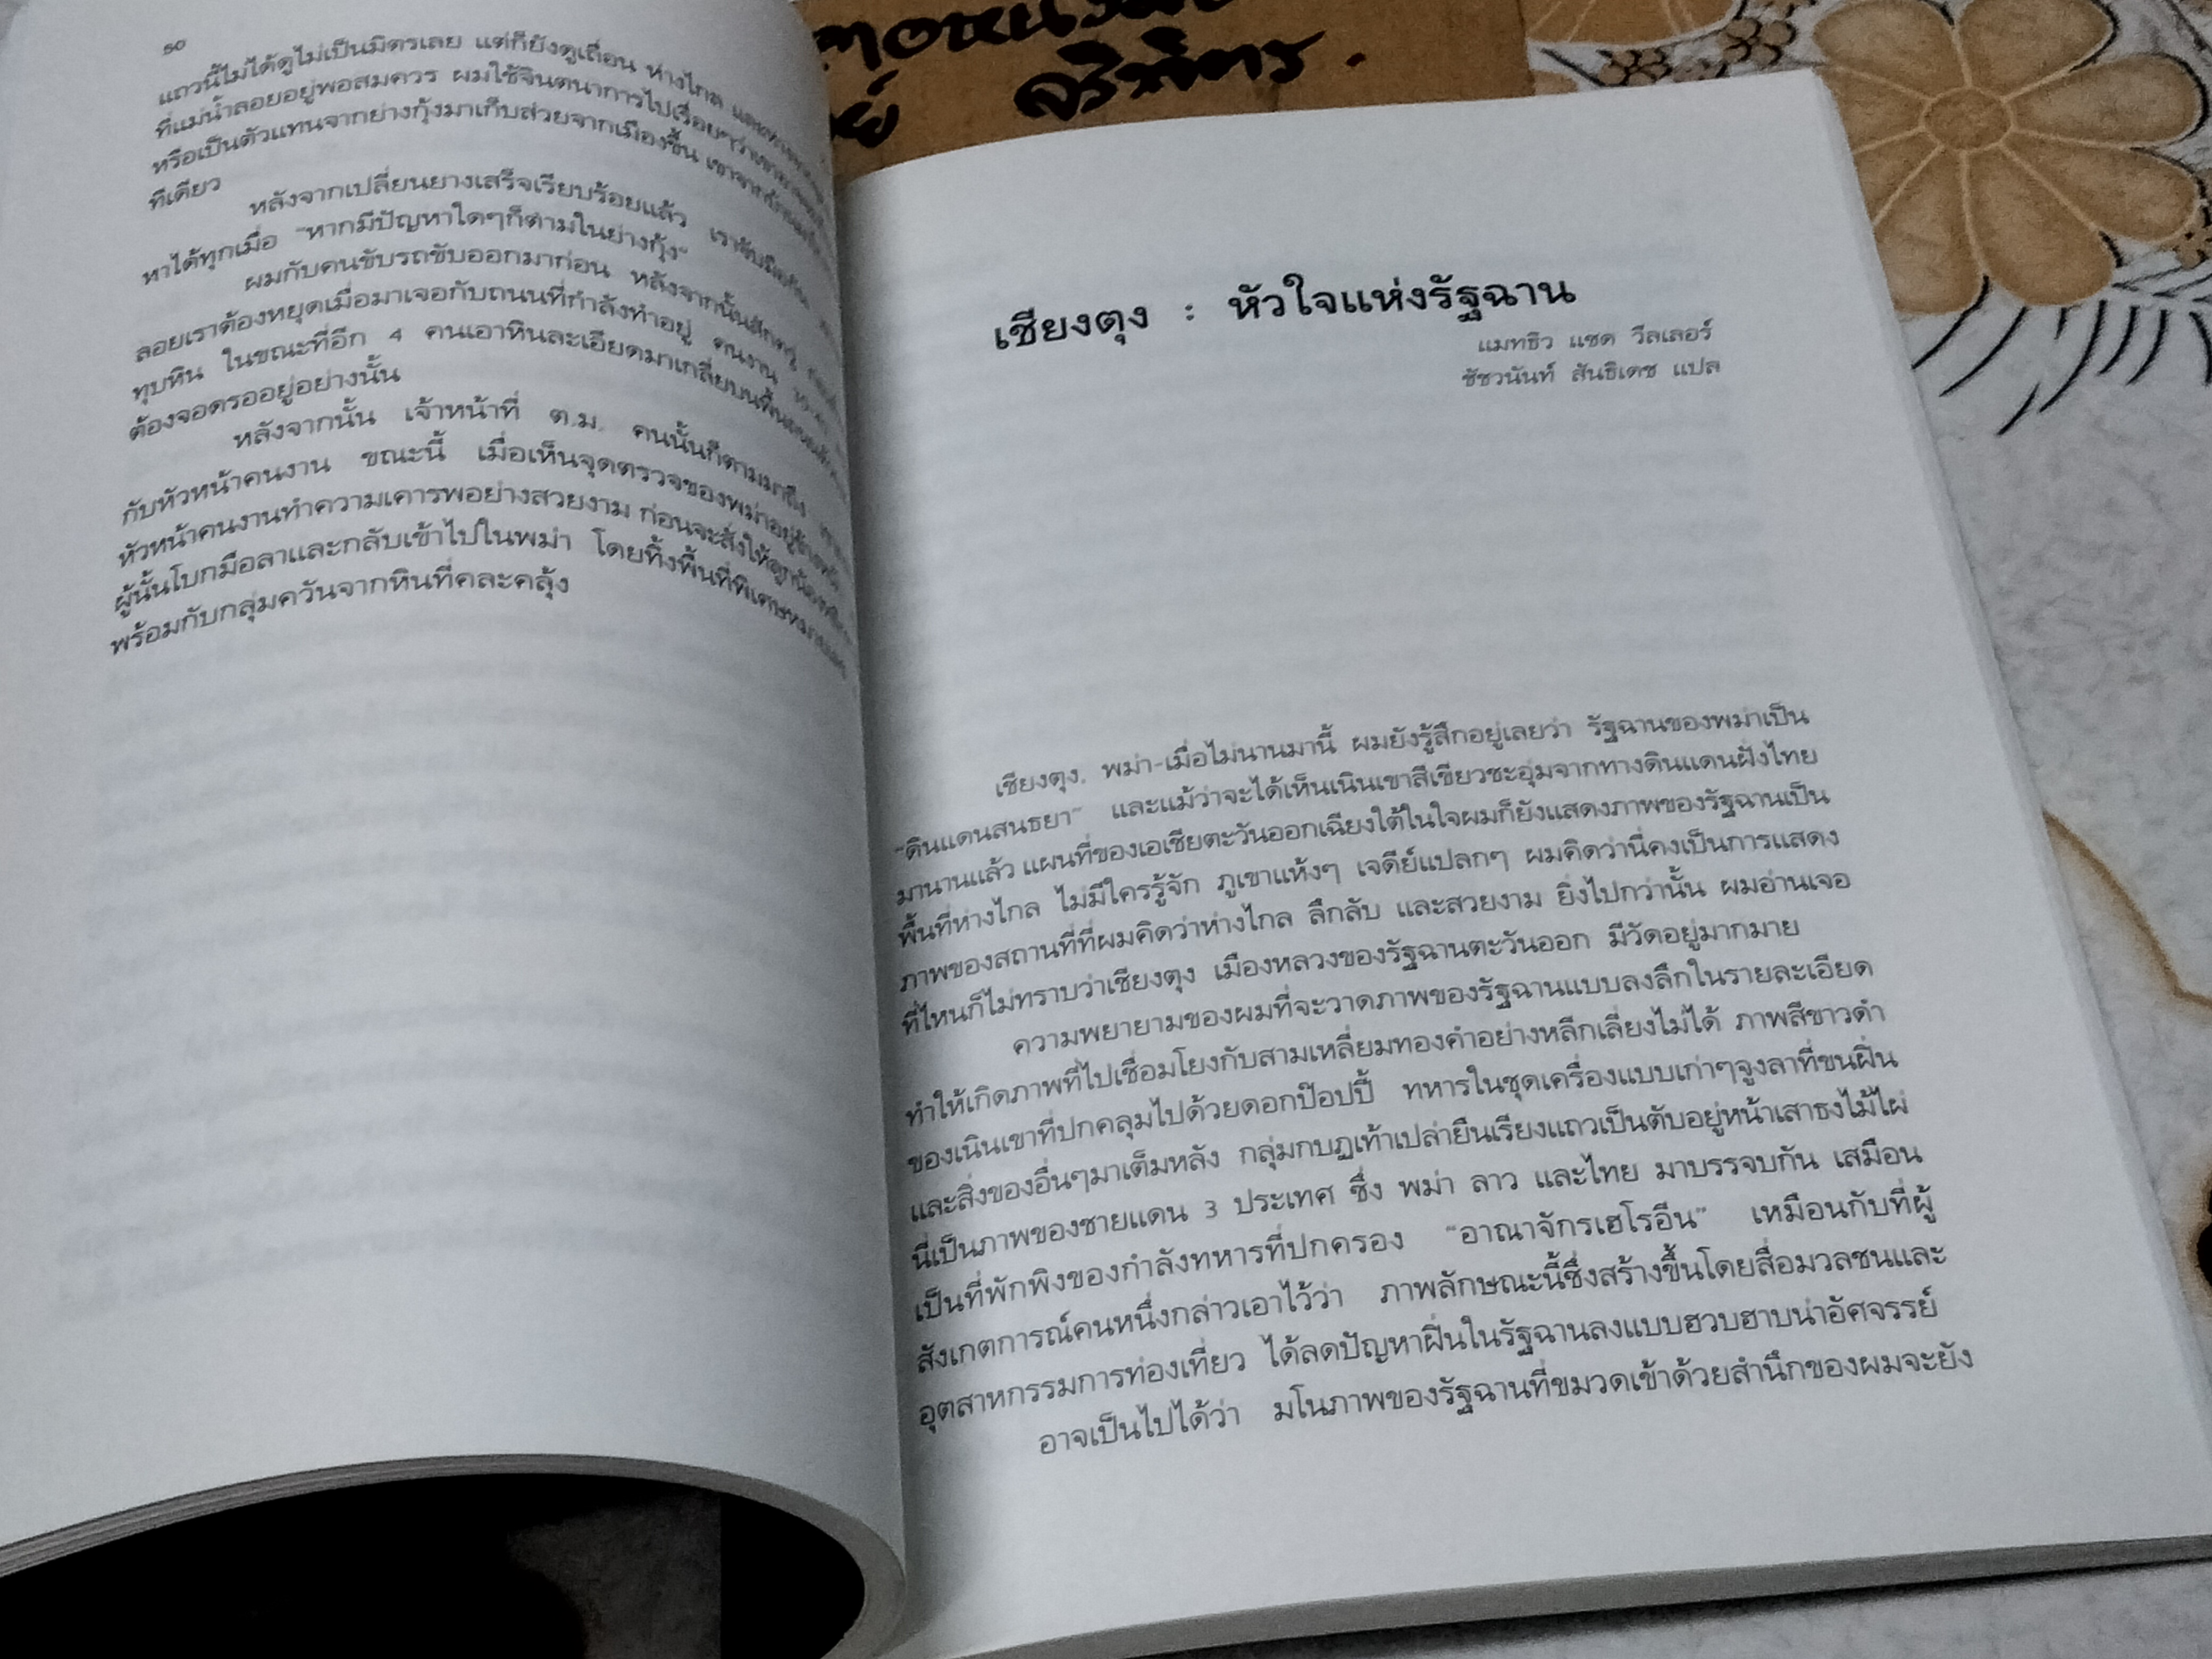 ๕๐
แถวนี้ไม่ได้ดูไม่เป็นมิตรเลย แต่ก็ยังดูเถื่อน ห่างไกล
ที่แม่น้ำลอยอยู่พอสมควร ผมใช้จินตนาการไปเรื่อยๆว่า
หรือเป็นตัวแทนจากย่างกุ้งมาเก็บส่วยจากเมืองขึ้น
ทีเดียว
หลังจากเปลี่ยนยางเสร็จเรียบร้อยแล้ว เราจับมือกัน
หาได้ทุกเมื่อ "หากมีปัญหาใดๆก็ตามในย่างกุ้ง"
ผมกับคนขับรถขับออกมาก่อน หลังจากนั้นสักครู่
ลอยเราต้องหยุดเมื่อมาเจอกับถนนที่กำลังทำอยู่ คนงาน
ทุบหิน ในขณะที่อีก 4 คนเอาหินละเอียดมาเกลี่ยบนพื้นถนน
ต้องจอดรออยู่อย่างนั้น
หลังจากนั้น เจ้าหน้าที่ ต.ม. คนนั้นก็ตามมาถึง
กับหัวหน้าคนงาน ขณะนี้ เมื่อเห็นจุดตรวจของพม่าอยู่
หัวหน้าคนงานทำความเคารพอย่างสวยงาม ก่อนจะสั่งให้
ผู้นั้นโบกมือลาและกลับเข้าไปในพม่า โดยทิ้งพื้นที่พิเศษ
พร้อมกับกลุ่มควันจากหินที่คละคลุ้ง
ตอหน
ย์ จริพัตร.
เชียงตุง : หัวใจแห่งรัฐฉาน
แมทธิว แซด วีลเลอร์
ชัชวนันท์ สันธิเดช แปล
เชียงตุง, พม่า-เมื่อไม่นานมานี้ ผมยังรู้สึกอยู่เลยว่า รัฐฉานของพม่าเป็น
"ดินแดนสนธยา" และแม้ว่าจะได้เห็นเนินเขาสีเขียวชะอุ่มจากทางดินแดนฝั่งไทย
มานานแล้ว แผนที่ของเอเชียตะวันออกเฉียงใต้ในใจผมก็ยังแสดงภาพของรัฐฉานเป็น
พื้นที่ห่างไกล ไม่มีใครรู้จัก ภูเขาแห้งๆ เจดีย์แปลกๆ ผมคิดว่านี่คงเป็นการแสดง
ภาพของสถานที่ที่ผมคิดว่าห่างไกล ลึกลับ และสวยงาม ยิ่งไปกว่านั้น ผมอ่านเจอ
ที่ไหนก็ไม่ทราบว่าเชียงตุง เมืองหลวงของรัฐฉานตะวันออก มีวัดอยู่มากมาย
ความพยายามของผมที่จะวาดภาพของรัฐฉานแบบลงลึกในรายละเอียด
ทำให้เกิดภาพที่ไปเชื่อมโยงกับสามเหลี่ยมทองคำอย่างหลีกเลี่ยงไม่ได้ ภาพสีขาวดำ
ของเนินเขาที่ปกคลุมไปด้วยดอกป๊อปปี้ ทหารในชุดเครื่องแบบเก่าๆจูงลาที่ขนฝิ่น
และสิ่งของอื่นๆมาเต็มหลัง กลุ่มกบฏเท้าเปล่ายืนเรียงแถวเป็นตับอยู่หน้าเสาธงไม้ไผ่
นี่เป็นภาพของชายแดน 3 ประเทศ ซึ่ง พม่า ลาว และไทย มาบรรจบกัน เสมือน
เป็นที่พักพิงของกำลังทหารที่ปกครอง "อาณาจักรเฮโรอีน" เหมือนกับที่ผู้
สังเกตการณ์คนหนึ่งกล่าวเอาไว้ว่า ภาพลักษณะนี้ซึ่งสร้างขึ้นโดยสื่อมวลชนและ
อุตสาหกรรมการท่องเที่ยว ได้ลดปัญหาฝิ่นในรัฐฉานลงแบบฮวบฮาบน่าอัศจรรย์
อาจเป็นไปได้ว่า มโนภาพของรัฐฉานที่ขมวดเข้าด้วยสำนึกของผมจะยัง